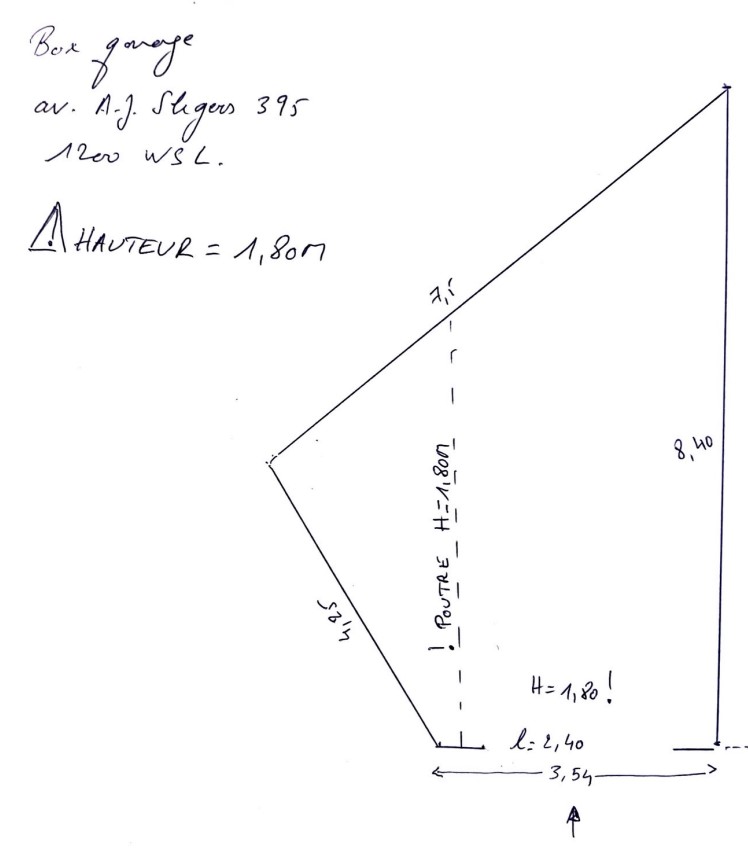 Box garage
av. A.J. Slegers 395
1200 WSL.
⚠ HAUTEUR = 1,80M
8,40
! POUTRE H=1,80M
4,25
H=1,80!
l=2,40
3,54